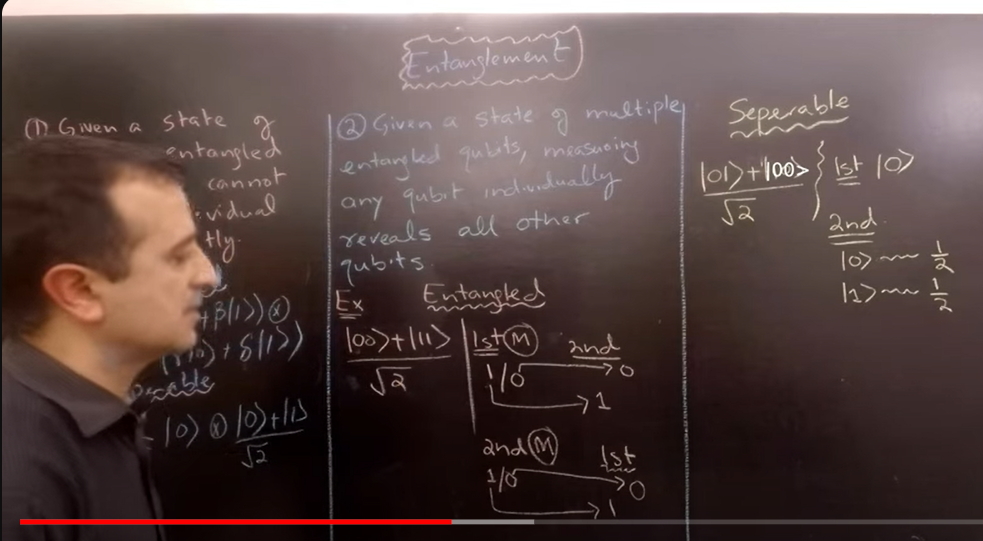 Entanglement
(1) Given a state of
entangled
cannot
vidual
tly.
+ β|1⟩) ⊗
|0⟩ + δ|1⟩)
|0⟩ ⊗ |0⟩+|1⟩
√2
② Given a state of multiple
entangled qubits, measuring
any qubit individually
reveals all other
qubits.
Ex Entangled
|00⟩+|11⟩
√2
1st Ⓜ 2nd
1/0 → 0
→ 1
2nd Ⓜ 1st
1/0 → 0
→ 1
Seperable
|01⟩+|00>
√2
1st |0⟩
2nd
|0⟩ ~~ 1/2
|1⟩ ~~ 1/2